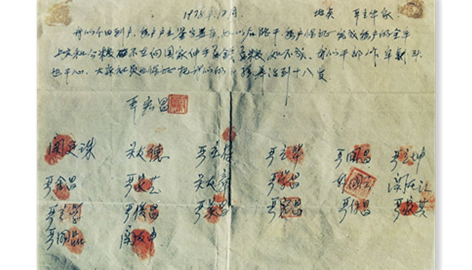 1978年12月 地点 严立华家
我们分田到户,每户户主签字盖章,如以后能干,每户保证完成每户的全年
上交和公粮不在向国家伸手要钱要粮,如不成,我们干部作牢刹
头也干心,大家社员也保证把我们的小孩养活到十八岁
严宏昌
关廷珠 关友德 严立符 严立华 严国昌 严立坤
严金昌 严家芝 关友章 严学昌 韩国云 关友江
严立学 严俊昌 严美昌 严付昌
严国品 关友申